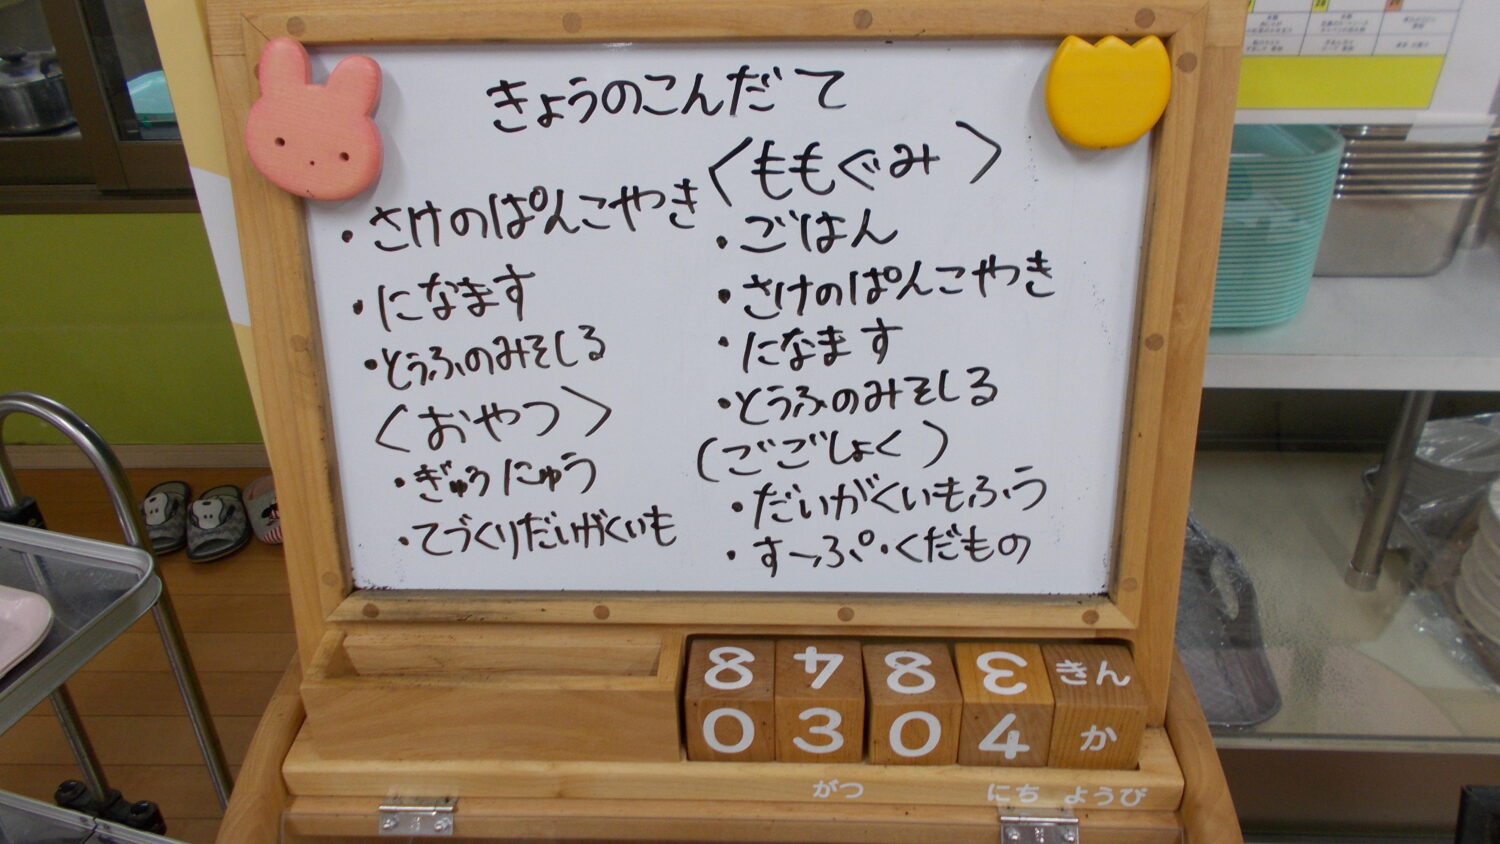 きょうのこんだて
・さけのぱんこやき
・になます
・とうふのみそしる
〈おやつ〉
・ぎゅうにゅう
・てづくりだいがくいも
〈ももぐみ〉
・ごはん
・さけのぱんこやき
・になます
・とうふのみそしる
(ごごしょく)
・だいがくいもふう
・すーぷ・くだもの
8 4 8 3 きん
0 3 0 4 か
がつ にち ようび